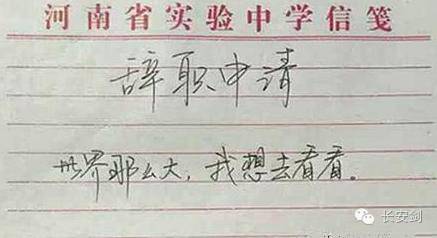 河南省实验中学信笺
辞职申请
世界那么大，我想去看看。
长安剑